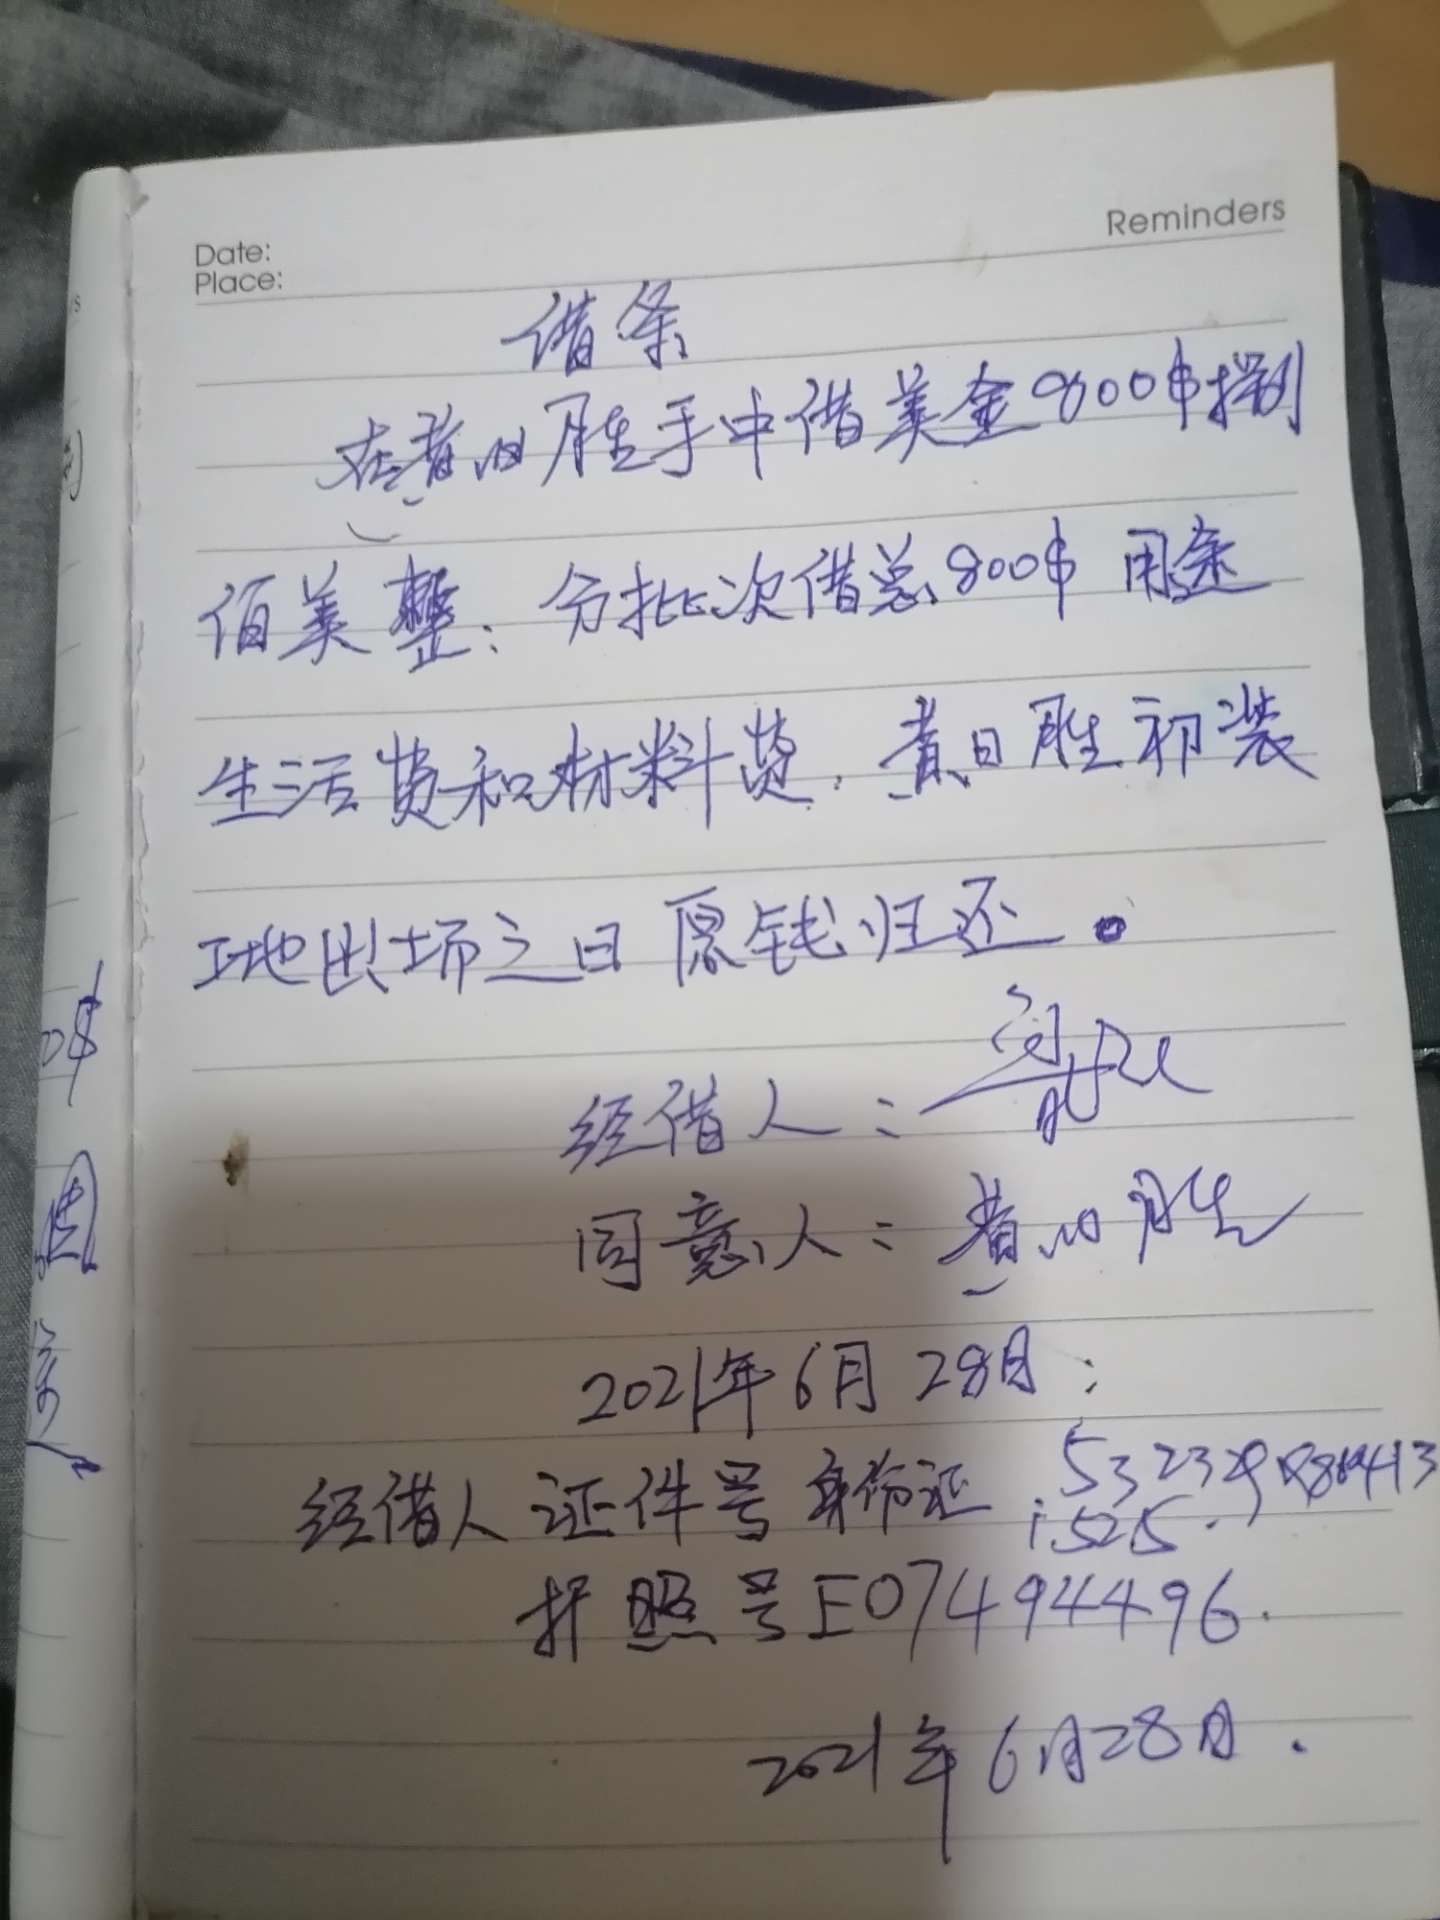 Reminders
Date:
Place:
借条
在黄日胜手中借美金800$捌
佰美整：分批次借总800$ 用途
生活费和材料费，黄日胜初装
工地出场之日原钱归还。
经借人：
同意人：黄日胜
2021年6月28日：
经借人证件号身份证
1525.
护照号E07494496.
2021年6月28日.